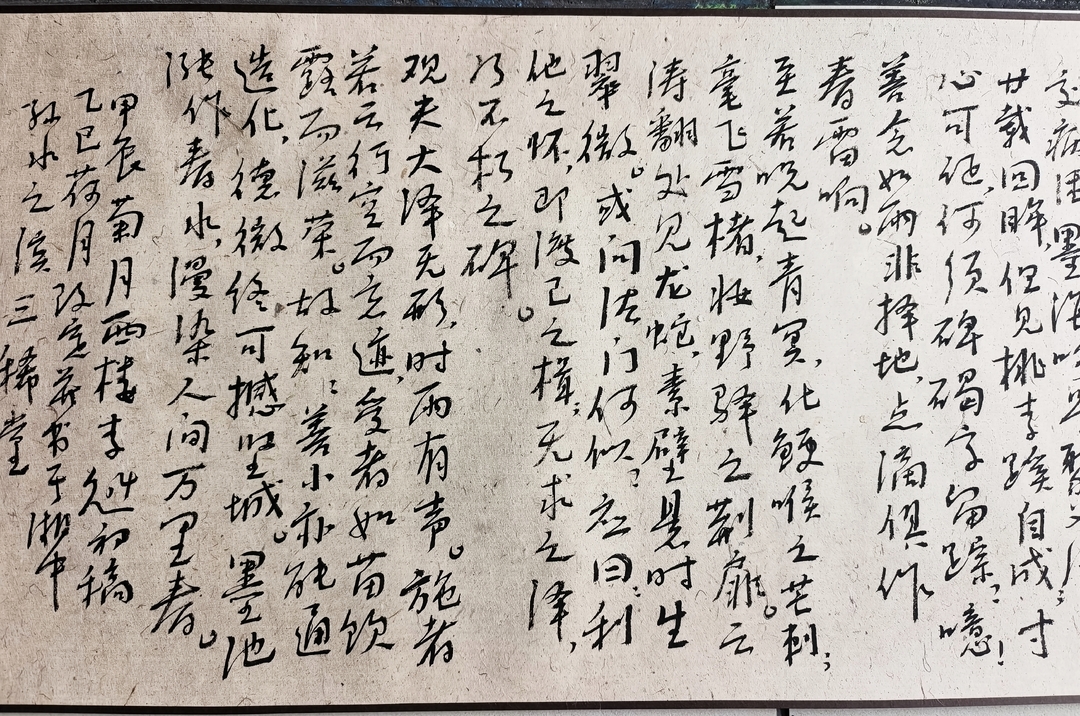 廿载回眸，但见桃李蹊自成；寸
心可砭，何须碑碣字留踪？噫！
善念如雨非择地，点滴俱作
春雷响。
至若晚起青冥，化鲠喉之芒刺；
毫飞雪楮，妆野驿之荆扉。云
涛翻处见龙蛇，素壁悬时生
翠微。或问法门何似？应曰：利
他之怀，即渡己之楫；无求之泽，
乃不朽之碑。
观夫大泽无形，时雨有声。施者
若云行空而忘迹，受者如苗饮
露而滋荣。故知：善小亦能通
造化，德微终可撼坚城。墨池
作春水，漫染人间万里春。
甲辰菊月西楼李 初稿
乙巳荷月改定并书于湘中
水之滨三稀堂